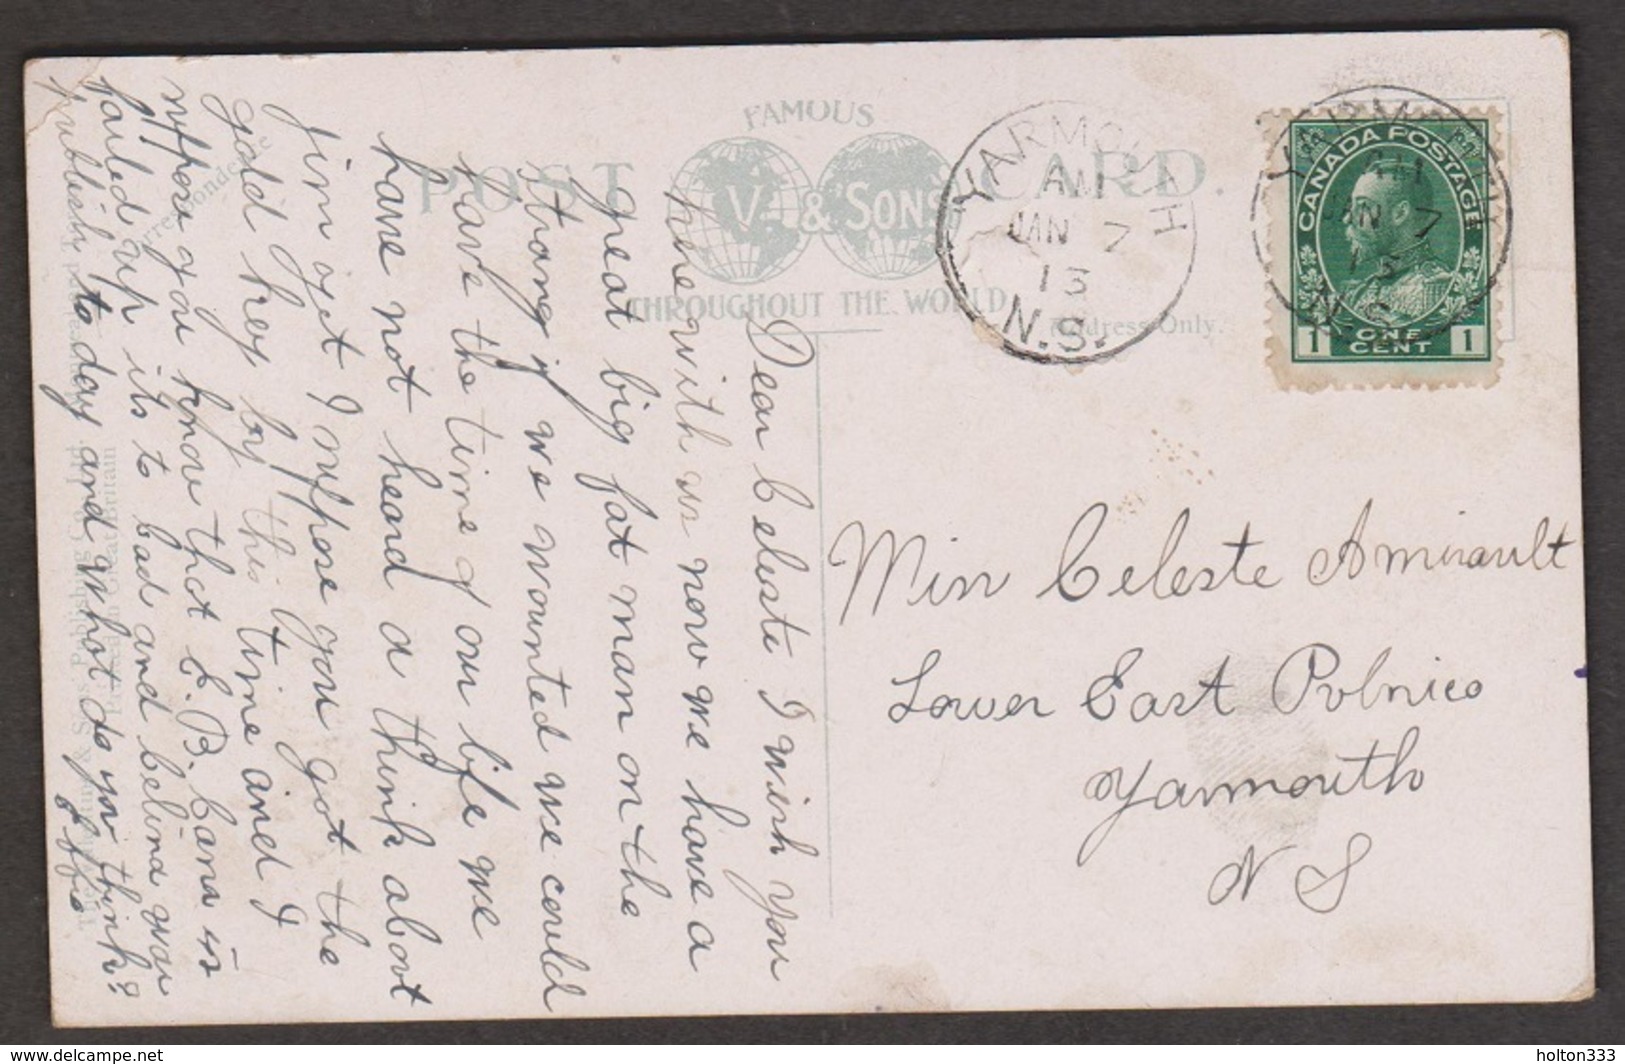 FAMOUS
POST CARD
V. & SONS
THROUGHOUT THE WORLD
Correspondence
Address Only.
YARMOUTH
AM
JAN 7
13
N.S.
YARMOUTH
AM
JAN 7
13
N.S.
CANADA POSTAGE
1 ONE CENT 1
Dear Celeste I wish you
were with us now we have a
great big fat man on the
string if we wounted we could
have the time of our life we
have not heard a think about
Jim yet I suppose you got the
gold hey by this time and I
suppose you know that E. B. Cann is
failed up its to bad and belina was
publish to day and what do you think?
Effie
Publishing Co., Ltd.
Great Britain
Miss Celeste Amirault
Lower East Pubnico
Yarmouth
N S
holton333